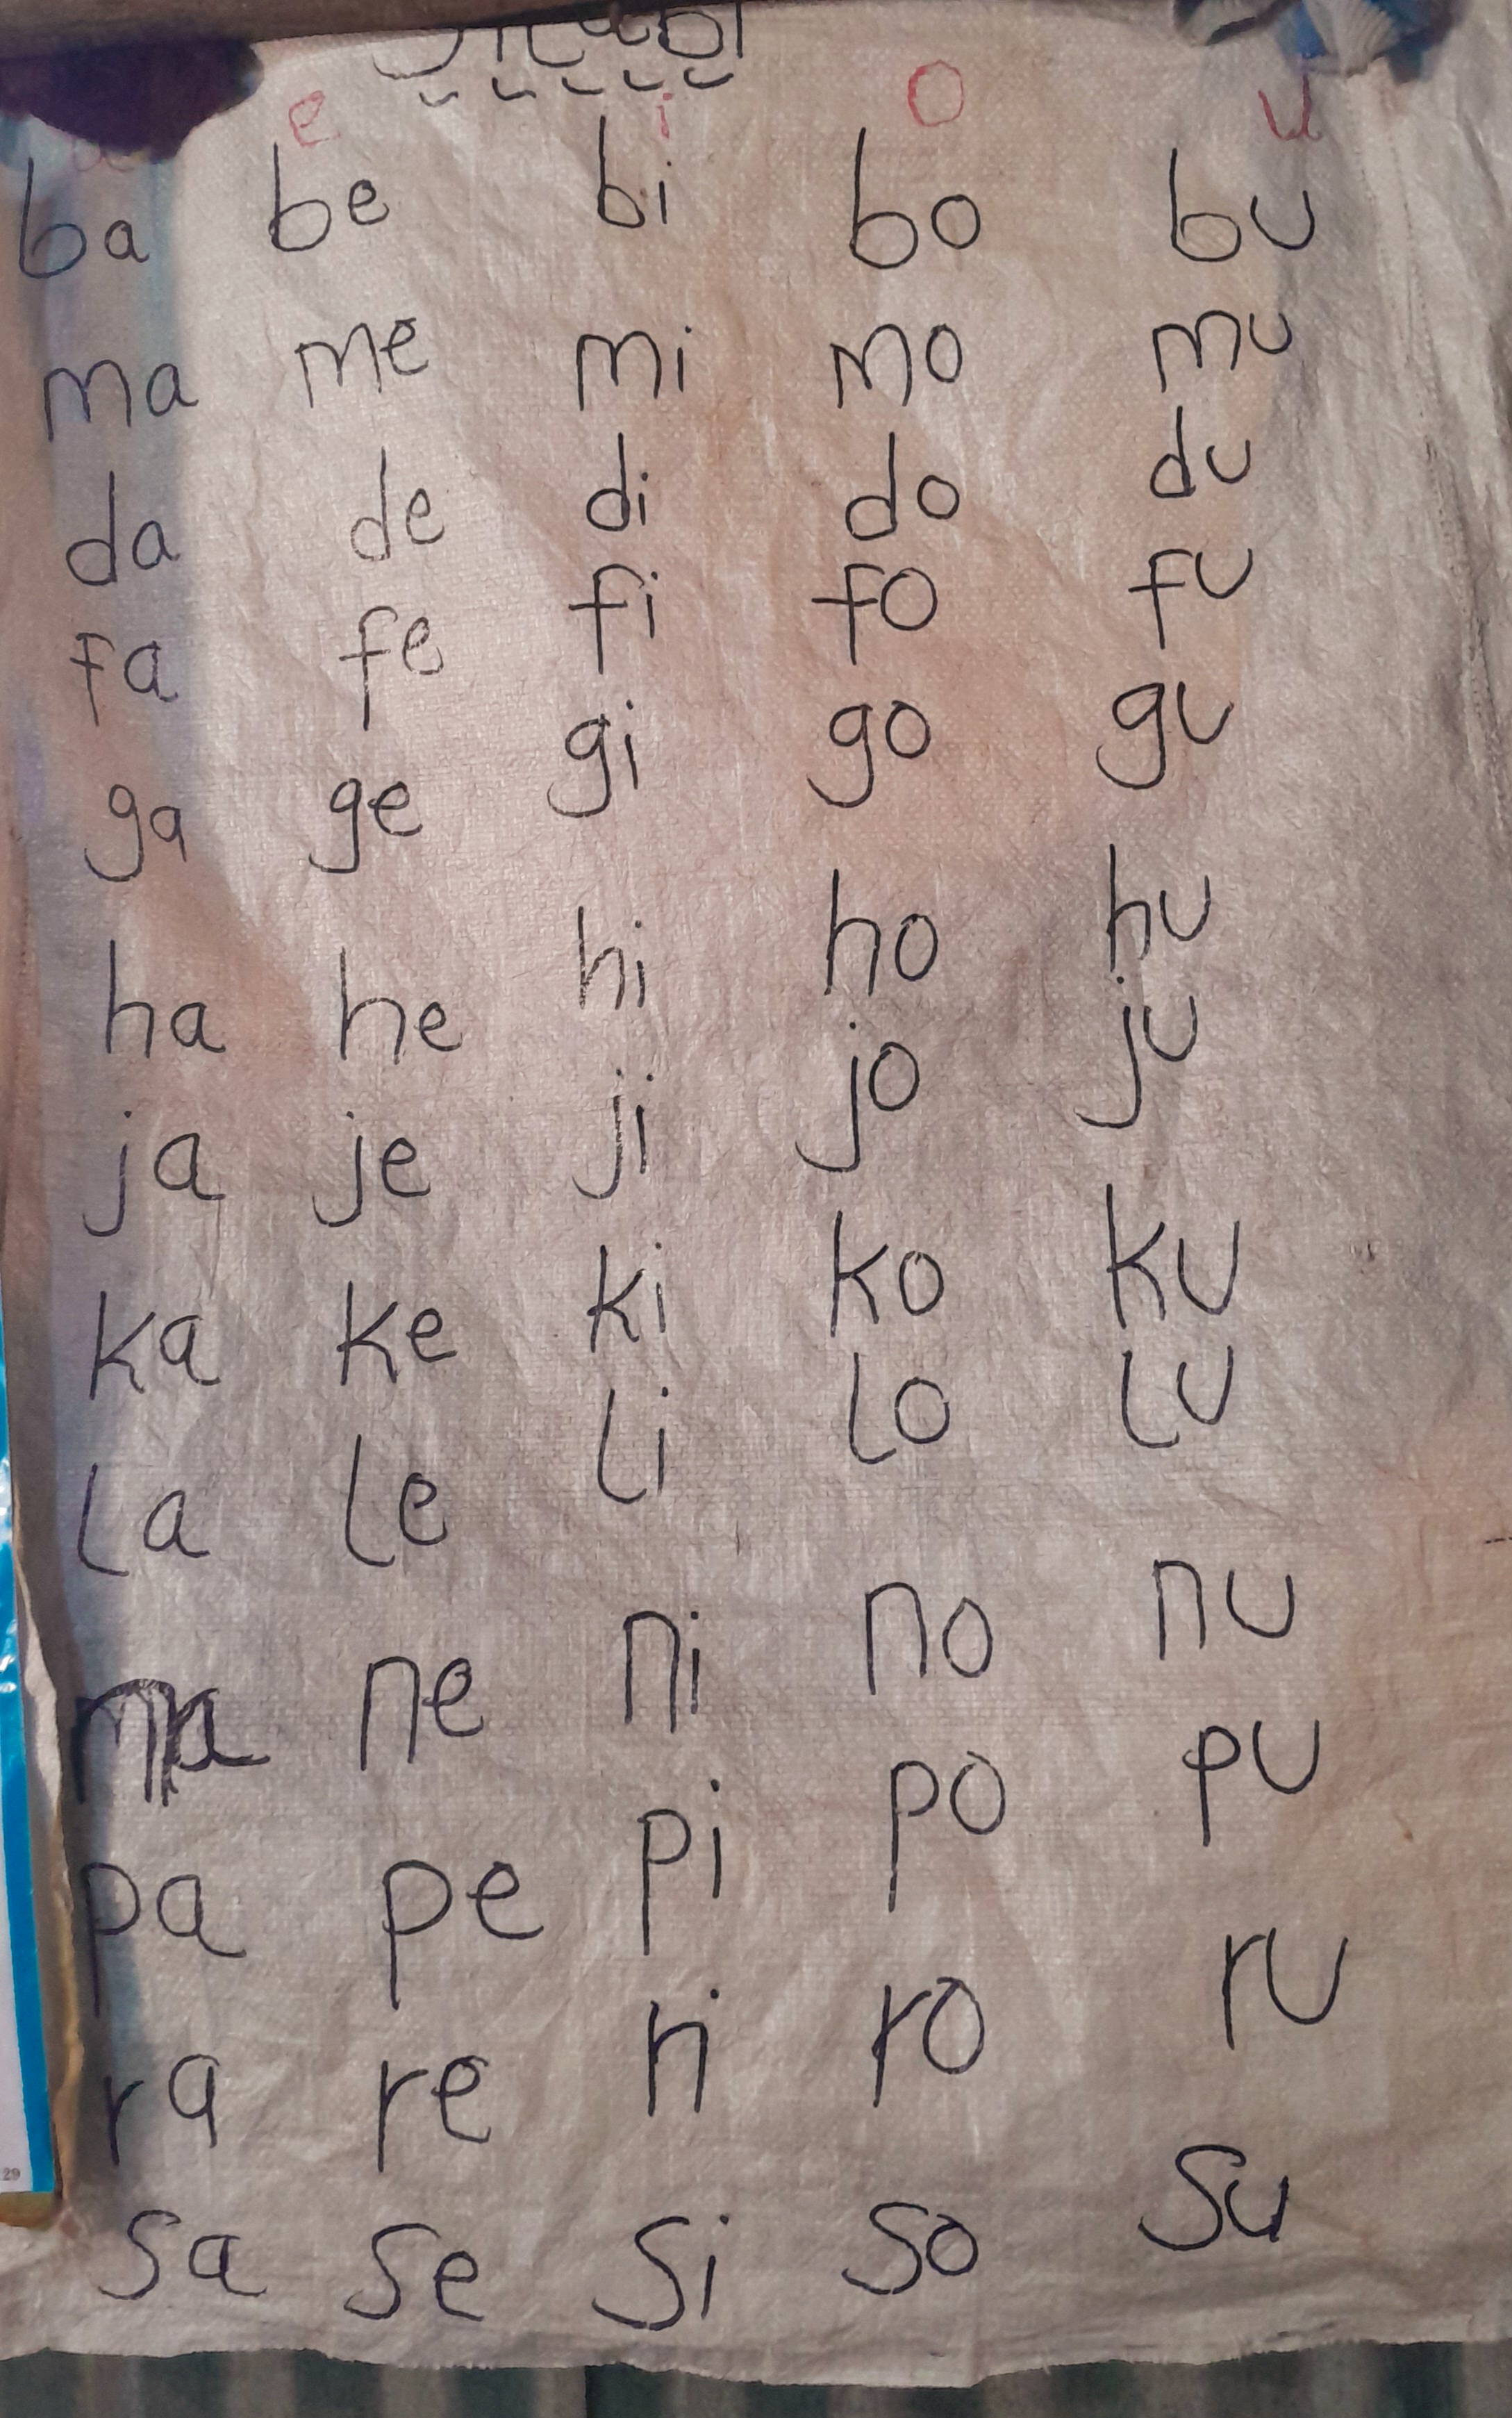 a e i o u
ba be bi bo bu
ma me mi mo mu
da de di do du
fa fe fi fo fu
ga ge gi go gu
ha he hi ho hu
ja je ji jo ju
ka ke ki ko ku
la le li lo lu
na ne ni no nu
pa pe pi po pu
ra re ri ro ru
sa se si so su
29